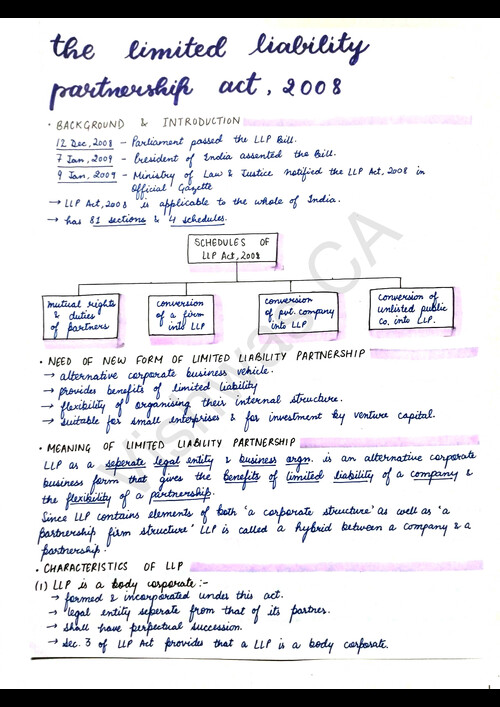 the limited liability
partnership act, 2008
• BACKGROUND & INTRODUCTION
12 Dec, 2008 – Parliament passed the LLP Bill.
7 Jan, 2009 – President of India assented the Bill.
9 Jan, 2009 – Ministry of Law & Justice notified the LLP Act, 2008 in
Official Gazette
→ LLP Act, 2008 is applicable to the whole of India.
→ has 81 sections & 4 schedules.
SCHEDULES OF
LLP Act, 2008
mutual rights
& duties
of partners
conversion
of a firm
into LLP
conversion
of pvt. company
into LLP
conversion of
unlisted public
co. into LLP.
• NEED OF NEW FORM OF LIMITED LIABILITY PARTNERSHIP
→ alternative corporate business vehicle.
→ provides benefits of limited liability
→ flexibility of organising their internal structure.
→ suitable for small enterprises & for investment by venture capital.
• MEANING OF LIMITED LIABILITY PARTNERSHIP
LLP as a seperate legal entity & business orgn. is an alternative corporate
business form that gives the benefits of limited liability of a company &
the flexibility of a partnership.
Since LLP contains elements of both 'a corporate structure' as well as 'a
partnership firm structure' LLP is called a hybrid between a company & a
partnership.
• CHARACTERISTICS OF LLP
(1) LLP is a body corporate:-
→ formed & incorporated under this act.
→ legal entity seperate from that of its partner.
→ shall have perpetual succession.
→ Sec. 3 of LLP Act provides that a LLP is a body corporate.